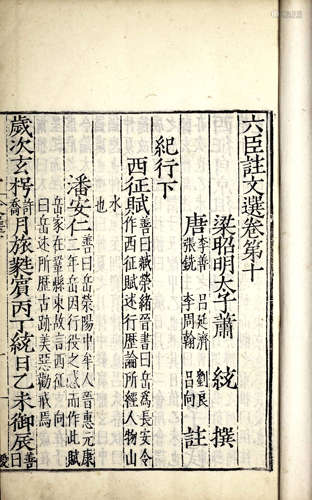 六臣註文選卷第十
梁昭明太子蕭 統 撰
唐
李善 呂延濟 劉良
張銑 李周翰 呂向
註
紀行下
西征賦
善曰臧榮緒晉書曰岳為長安令
作西征賦述行歷論所經人物山
水
也
潘安仁
善曰岳滎陽中牟人晉惠元康
二年岳因行役之感而作此賦
岳家在鞏縣東故言西征 向
曰岳述所歷古跡美惡勸戒焉
歲次玄枵許喬月旅蕤賓丙丁統日乙未御辰善曰